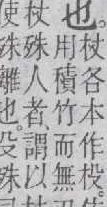 也
杖各本作杸
用積竹而無
杖殊人者、謂以
使殊離也。殳殊